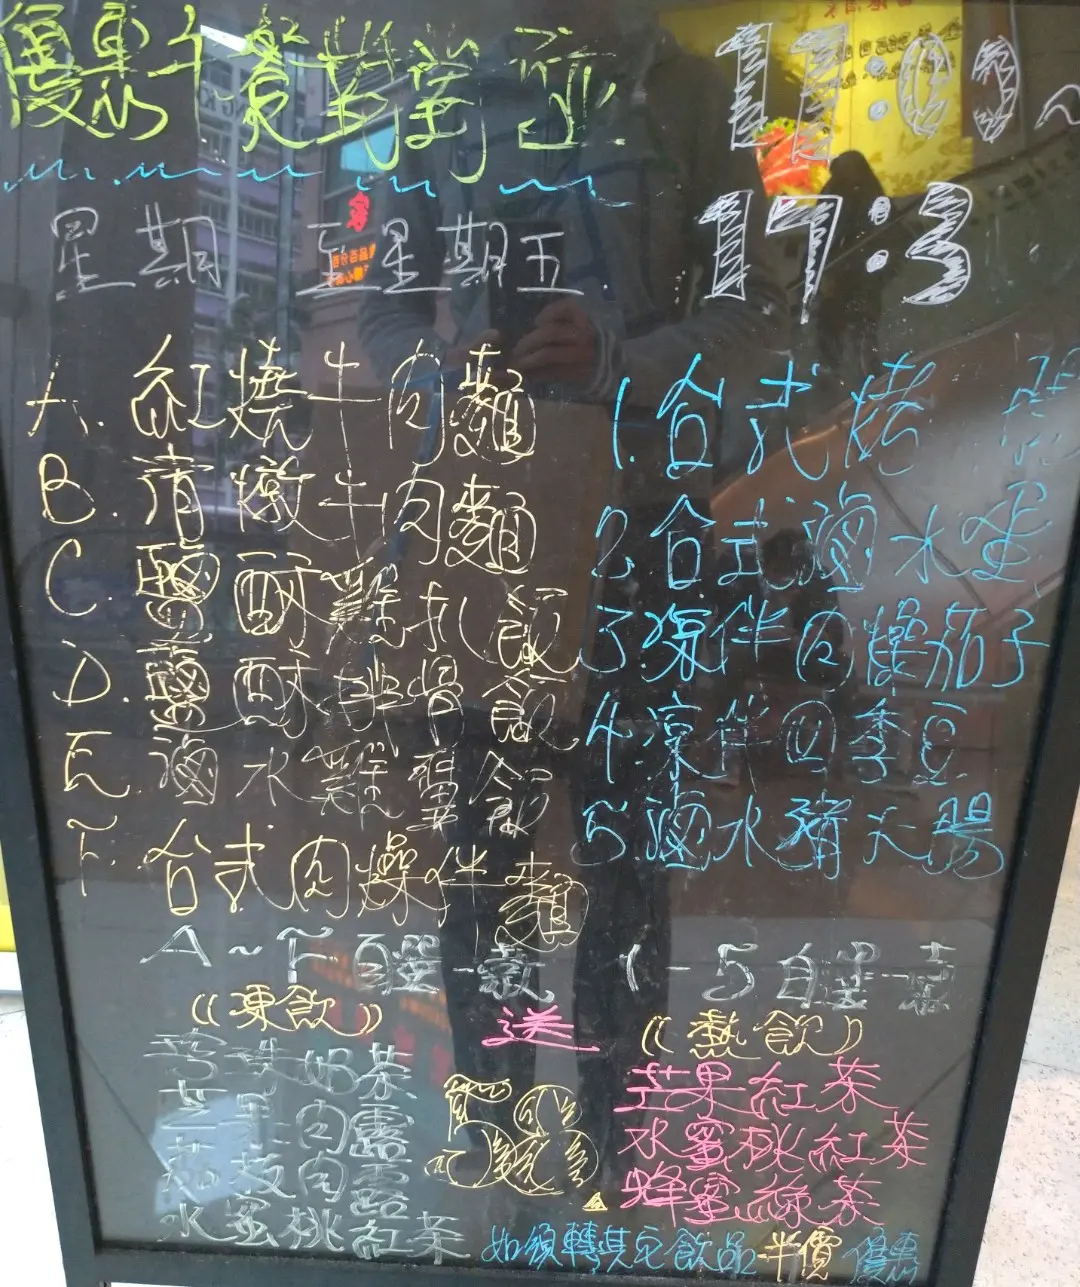 優惠午餐
11:00~
星期 至星期五
17:3
A. 紅燒牛肉麵
B. 清燉牛肉麵
C. 鹽酥雞扒飯
D. 鹽酥排骨飯
E. 滷水雞翼飯
F. 台式肉燥伴麵
1. 台式烤
2. 台式滷水蛋
3. 涼伴肉燥茄子
4. 涼伴四季豆
5. 滷水豬大腸
A~F自選一款
1-5自選一款
送
(凍飲)
珍珠奶茶
芒果肉露
荔枝肉露
水蜜桃紅茶
58
(熱飲)
芒果紅茶
水蜜桃紅茶
蜂蜜綠茶
如須轉其它飲品半價優惠